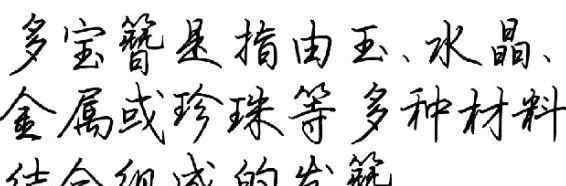 多宝簪是指由玉、水晶、
金属或珍珠等多种材料
结合组成的发簪